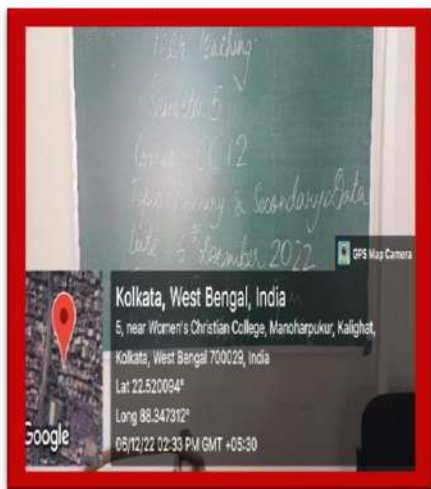 Peer Teaching
Semester 5
CC12
Topic: Primary & Secondary Data
Date - 6th December 2022
GPS Map Camera
Kolkata, West Bengal, India
5, near Women's Christian College, Manoharpukur, Kalighat,
Kolkata, West Bengal 700029, India
Lat 22.520094°
Long 88.347312°
06/12/22 02:33 PM GMT +05:30
Google